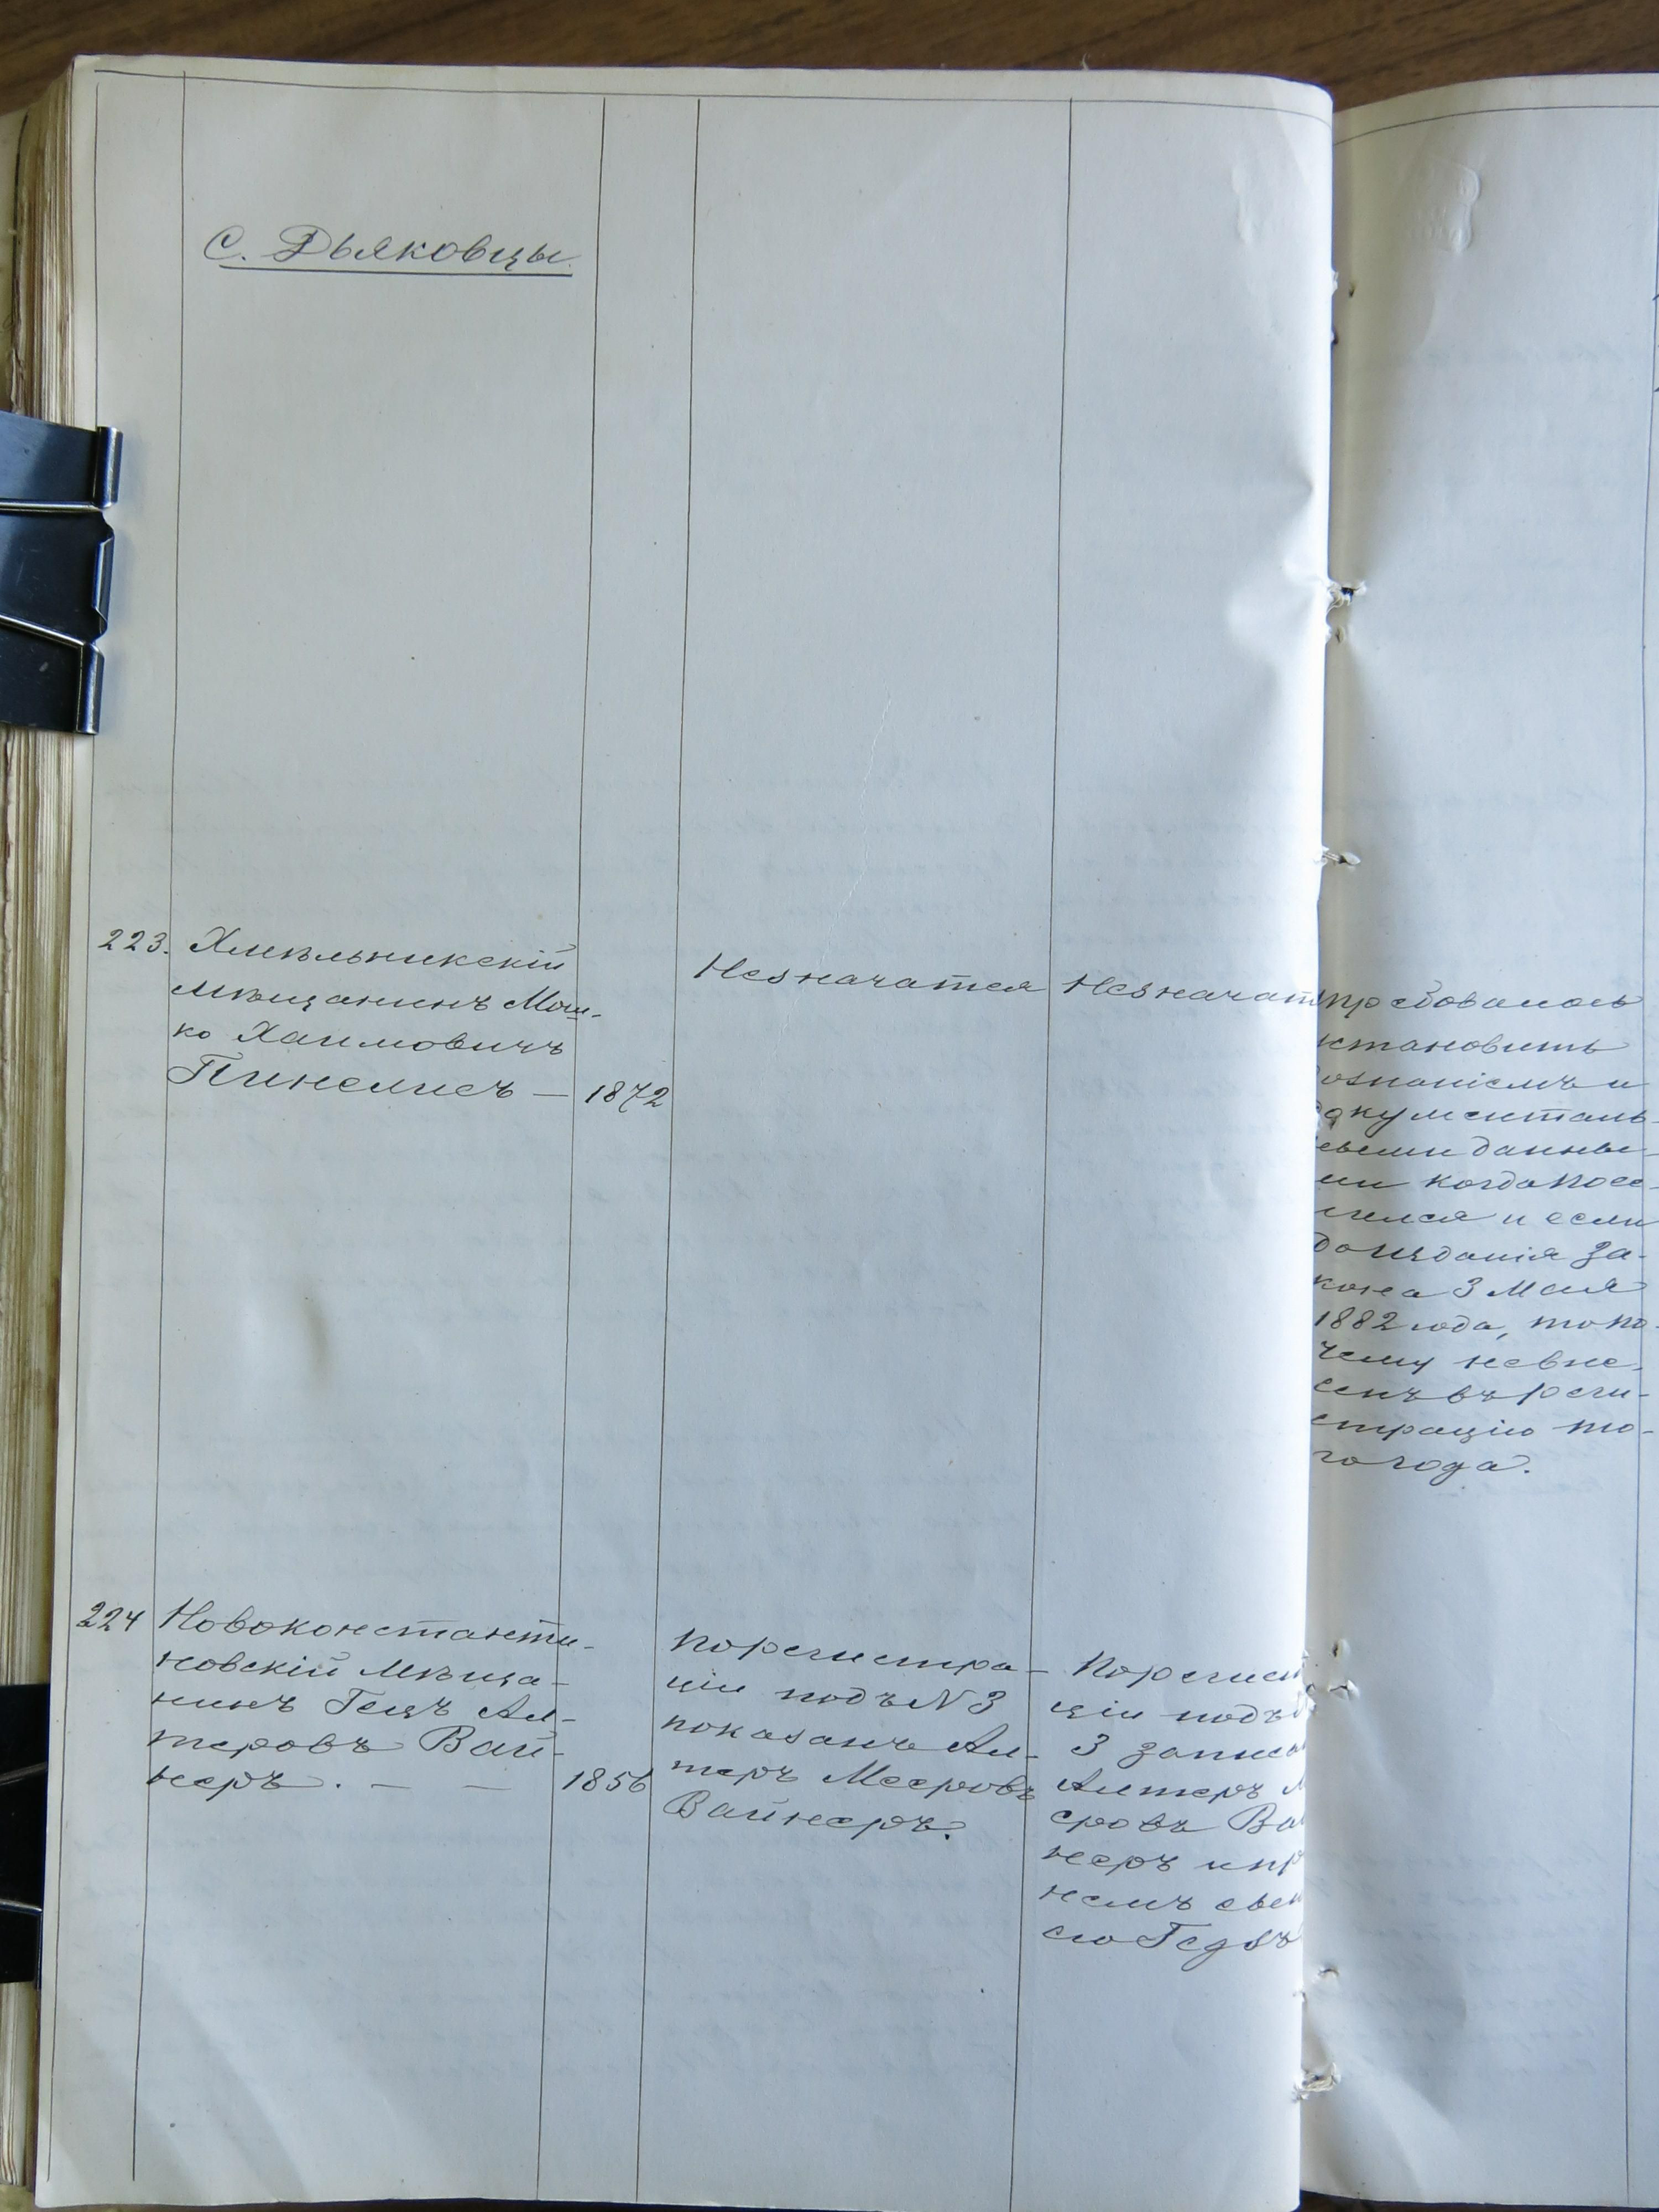 С. Дьяковцы.
223. Хмѣльникскій
мѣщанинъ Мош-
ко Хаимовичъ
Пинелисъ — 1872
Незначатся
Незначат
требовалось
установить
дознаніемъ и
документаль-
ными данны-
ми когда посе-
лился и если
до изданія за-
кона 3 Мая
1882 года, то по-
чему невне-
сенъ въ реги-
страцію то-
го года.
224 Новоконстанти-
новскій мѣща-
нинъ Гецъ Ал-
теровъ Вай-
неръ. — — 1856
По регистра-
ціи подъ N 3
показанъ Ал-
теръ Мееровъ
Вайнеръ.
По регист
ціи подъ
3 запис
Алтеръ М
еровъ Ва
неръ и пр
немъ сын
его